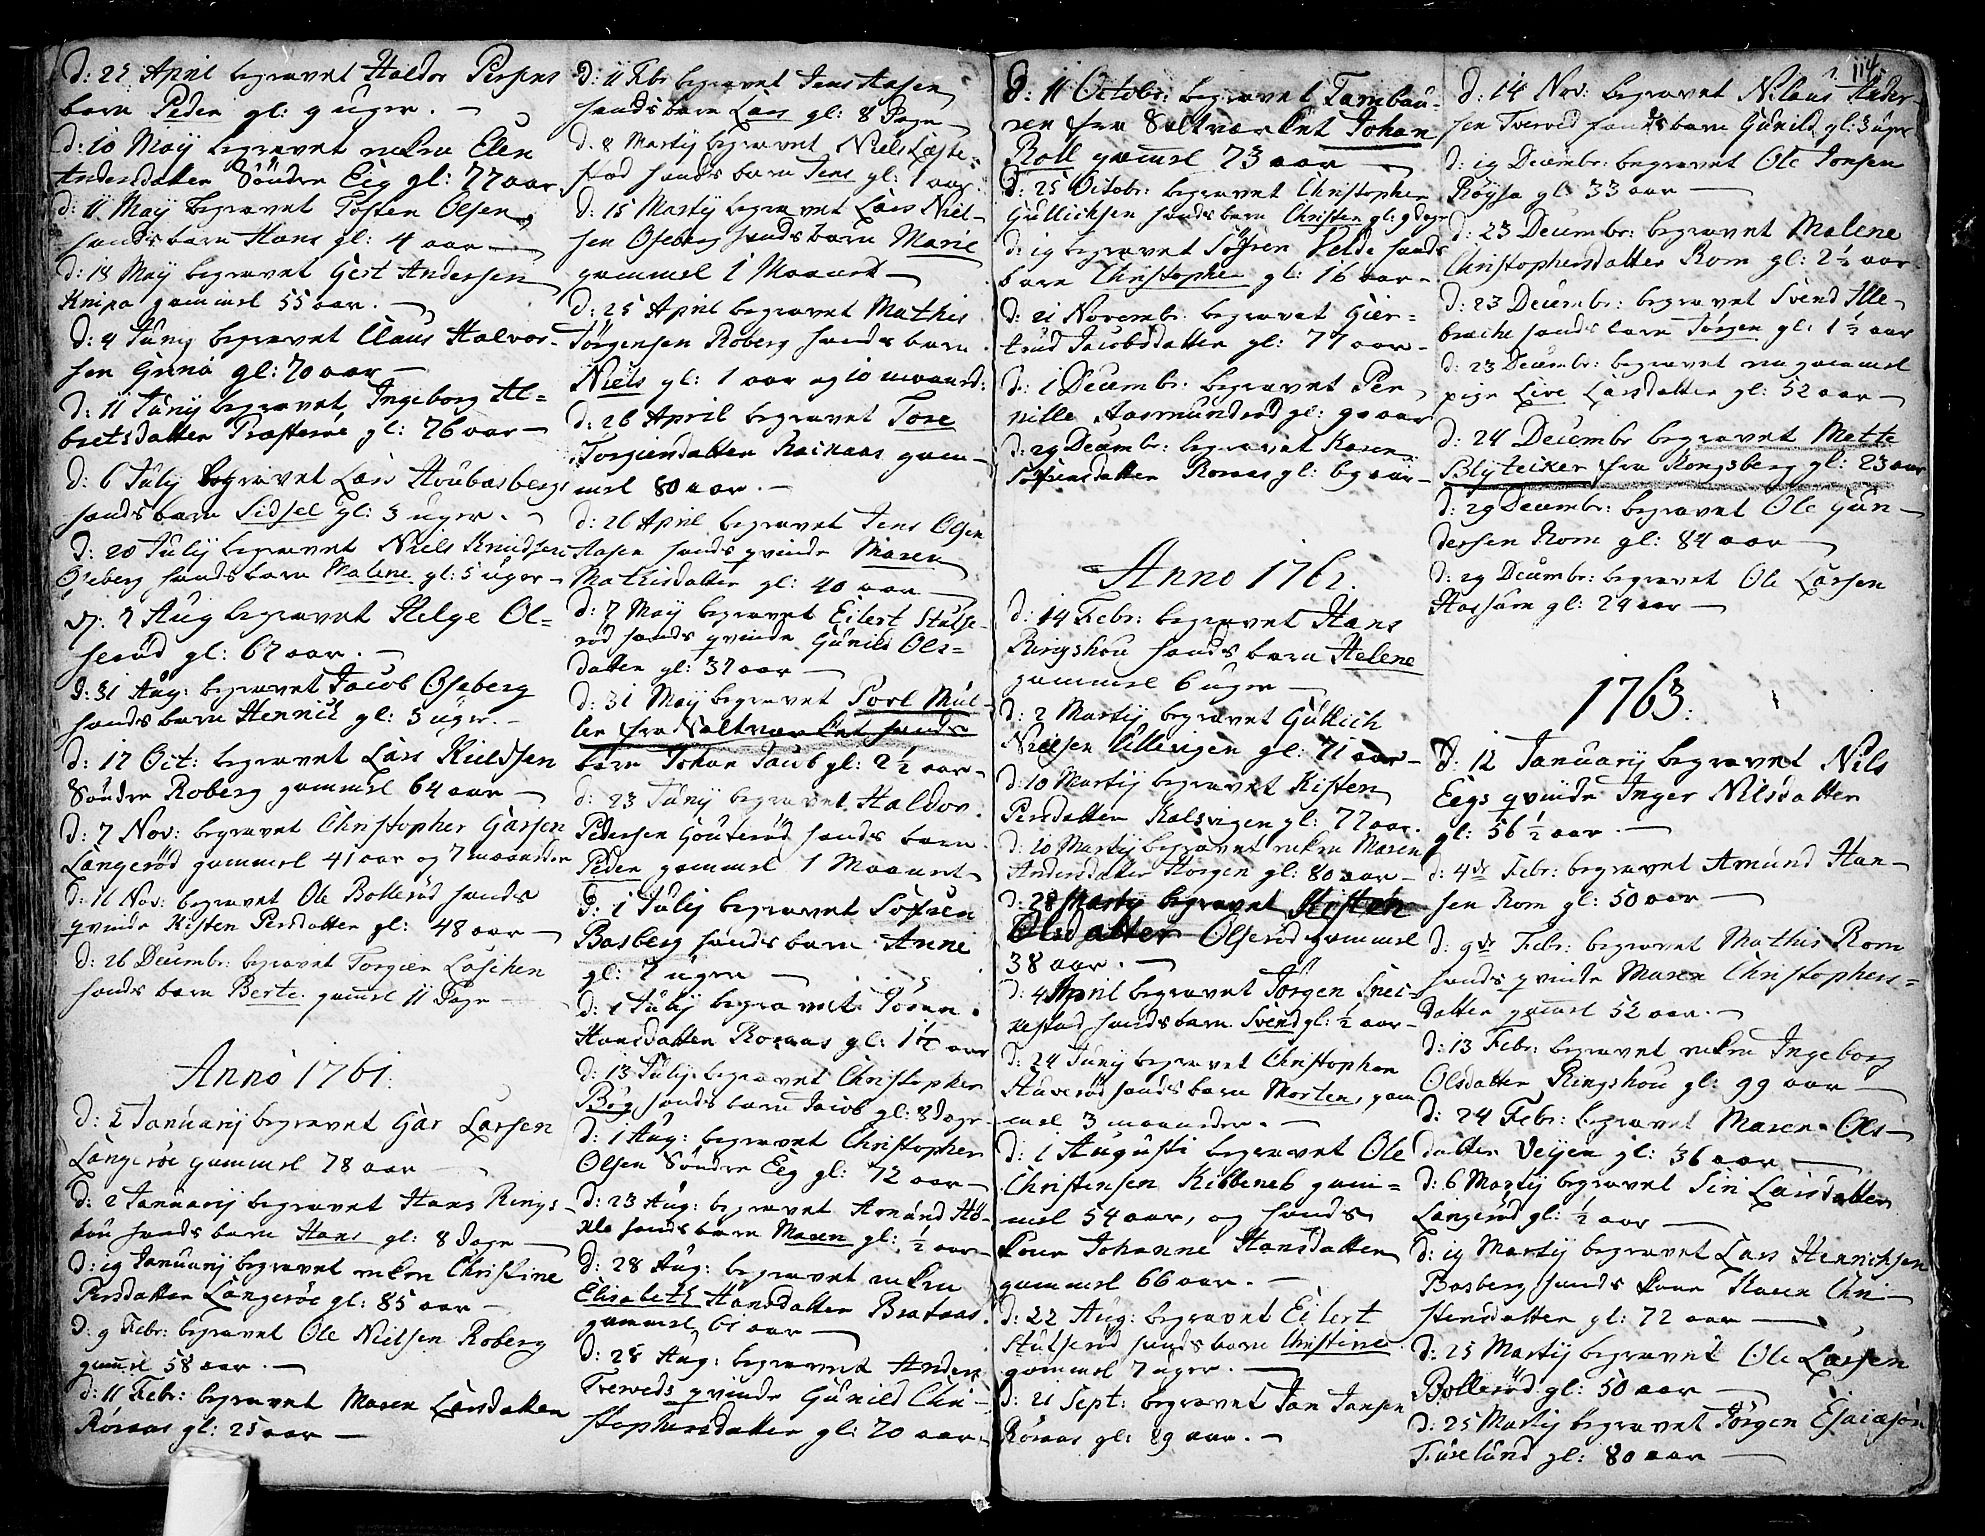 d: 27 April begravet Haldor Persens
barn Peder gl: 9 uger. —
d: 10 Maÿ begravet enken Elen
Andersdatter Söndre Eeg gl: 77 aar
d: 11 Maÿ begravet Tosten Olsen
hands barn Hans gl: 4 aar —
d: 18 Maÿ begravet Gert Andersen
Knipa gammel 55 aar. —
d: 4 Junÿ begravet Claus Halvor-
sen Grinó gl: 70 aar —
d: 11 Junÿ begravet Ingeborg Al=
bretsdatter Præsterne gl: 76 aar —
d: 6 Julÿ begravet Lars Houbasbergs
hands barn Sidsel gl: 3 uger. —
d: 20 Julÿ begravet Niels Knudsen
Oseberg hands barn Malene gl: 5 uger —
d: 7 Aug begravet Helge Ol=
serud gl: 67 aar. —
d: 31 Aug: begravet Jacob Oseberg
hands barn Henrich gl: 3 uger. —
d: 17 Oct: begravet Lars Kieldsen
Söndre Roberg gammel 64 aar —
d: 7 Nov: begravet Christopher Garsen
Langeröd gammel 41 aar og 7 maaneder
d: 16 Nov: begravet Ole Bolleröd hands
qvinde Kisten Persdatter gl: 48 aar —
d: 26 Decembr: begravet Torgier Laschen
hands barn Berte gamel 11 Dage —
Anno 1761.
d: 2 Januarÿ begravet Gar Larsen
Langeröe gammel 78 aar —
d: 2 Januarÿ begravet Hans Rings-
hou hands barn Hans gl: 8 Dage —
d: 19 Januarÿ begravet enken Christine
Persdatter Langeröe gl: 85 aar —
d: 9 Febr: begravet Ole Nielsen Roberg
gamel 58 aar. —
d: 11 Febr: begravet Maren Larsdatter
Röraas gl: 25 aar —
d: 11 Febr begravet Jens Aasen
hands barn Lars gl: 8 Dage
d: 8 Martÿ begravet Niels Laste-
stad hands barn Jens gl: 1 aar.
d: 15 Martÿ begravet Lars Niel-
sen Oseberg hands barn Marie
gammel 1 Maanet —
d: 25 April begravet Mathis
Jörgensen Roberg hands barn
Niels gl: 1 aar og 10 maaned:
d: 26 April begravet Tore
Torgiersdatter Rackaas gam-
mel 80 aar. —
d: 26 April begravet Jens Olsen
Aasen hands qvinde Maren
Mathisdatter gl: 40 aar —
d: 7 Maÿ begravet Eilert Stulse-
röd hands qvinde Gunild Ols=
datter gl: 37 aar —
d: 31 Maÿ begravet Poel Mül-
ler fra Saltværket hands
barn Johan Jacob gl: 2½ aar —
d: 23 Junÿ begravet Haldor
Pedersen Gouteröd hands barn
Peder gammel 1 Maanet —
d: 1 Julÿ begravet Sofren
Basberg hands barn Anne
gl: 7 uger —
d: 1 Julÿ begravet Joran
Hansdatter Roraas gl: 1½ aar
d: 13 Julÿ begravet Christopher
Bög hands barn Jacob gl: 8 Dage
d: 1 Aug: begravet Christopher
Olsen Söndre Eeg gl: 72 aar —
d: 23 Aug: begravet Amund Hö-
hands barn Maren gl: ½ aar —
d: 28 Aug: begravet enken
Elisabeth Hansdatter Brataas
gammel 61 aar —
d: 28 Aug: begravet Anders
Treveds qvinde Gunild Chri-
stophersdatter gl: 70 aar. —
d: 11 Octobr: begravet Tambou-
ren fra Saltværket Johan
Roll gammel 73 aar —
d: 25 Octobr: begravet Christopher
Gullichsen hands barn Christen gl: 9 dage
d: 19 begravet Sofren Velde hands
barn Christopher gl: 16 aar —
d: 21 Novembr: begravet Gier=
trud Jacobsdatter gl: 77 aar —
d: 1 Decembr: begravet Per-
nille Aasmundröd gl: 90 aar
d: 29 Decembr: begravet Karen
Sofrensdatter Roraas gl: 69 aar —
Anno 1762.
d: 14 Febr: begravet Hans
Ringshou hands barn Helene
gammel 6 uger —
d: 2 Martÿ begravet Gullich
Nielsen Ullevigen gl: 71 aar —
d: 10 Martÿ begravet Kisten
Persdatter Kalsvigen gl: 77 aar.
d: 10 Martÿ begravet enken Maren
Andersdatter Horgen gl: 80 aar —
d: 28 Martÿ begravet Kisten
Olsdatter Olseröd gammel
38 aar. —
d: 4 April begravet Jörgen Snec-
kestad hands barn Svend gl: ½ aar —
d: 24 Junÿ begravet Christopher
Haveröd hands barn Morten, gam-
mel 3 maaneder. —
d: 1 Augusti begravet Ole
Christensen Kibbeneb gam=
mel 54 aar, og hands
kone Johanne Hansdatter
gammel 66 aar. —
d: 22 Aug: begravet Eilert
Stulseröd hands barn Christine
gammel 7 uger. —
d: 21 Sept: begravet Jan Jansen
Röraas gl: 89 aar. —
114.
d: 14 Nov: begravet Nilaus Ander-
sen Treved hands barn Gunild gl: 3 uger
d: 19 Decembr: begravet Ole Jonsen
Röysa gl: 33 aar —
d: 23 Decembr: begravet Malene
Christophersdatter Rom gl: 2½ aar
d: 23 Decembr: begravet Svend Ille-
brache hands barn Jörgen gl: 1½ aar
d: 23 Decembr: begravet en gammel
pige Live Larsdatter gl: 52 aar —
d: 24 Decembr begravet Mette
Blyteiker fra Kongsberg gl: 23 aar
d: 29 Decembr: begravet Ole Gun-
dersen Rom gl: 84 aar —
d: 29 Decembr: begravet Ole Larsen
Hassum gl: 24 aar —
1763.
d: 12 Januarÿ begravet Nils
Eegs qvinde Inger Nilsdatter
gl: 56½ aar. —
d: 4de Febr: begravet Amund Han-
sen Rom gl: 50 aar —
d: 9de Febr: begravet Mathis Rom
hands qvinde Maren Christophers=
datter gamel 52 aar. —
d: 13 Febr: begravet enken Ingeborg
Olsdatter Ringshou gl: 99 aar —
d: 24 Febr: begravet Maren Ols-
datter Veÿen gl: 36 aar —
d: 6 Martÿ begravet Siri Larsdatter
Langeröd gl: ½ aar —
d: 19 Martÿ begravet Lars Henrichsen
Basberg hands kone Karen Chri-
stensdatter gl: 72 aar —
d: 25 Martÿ begravet Ole Larsen
Bolleröd gl: 50 aar —
d: 25 Martÿ begravet Jörgen Esaiasen
Tuselund gl: 80 aar —